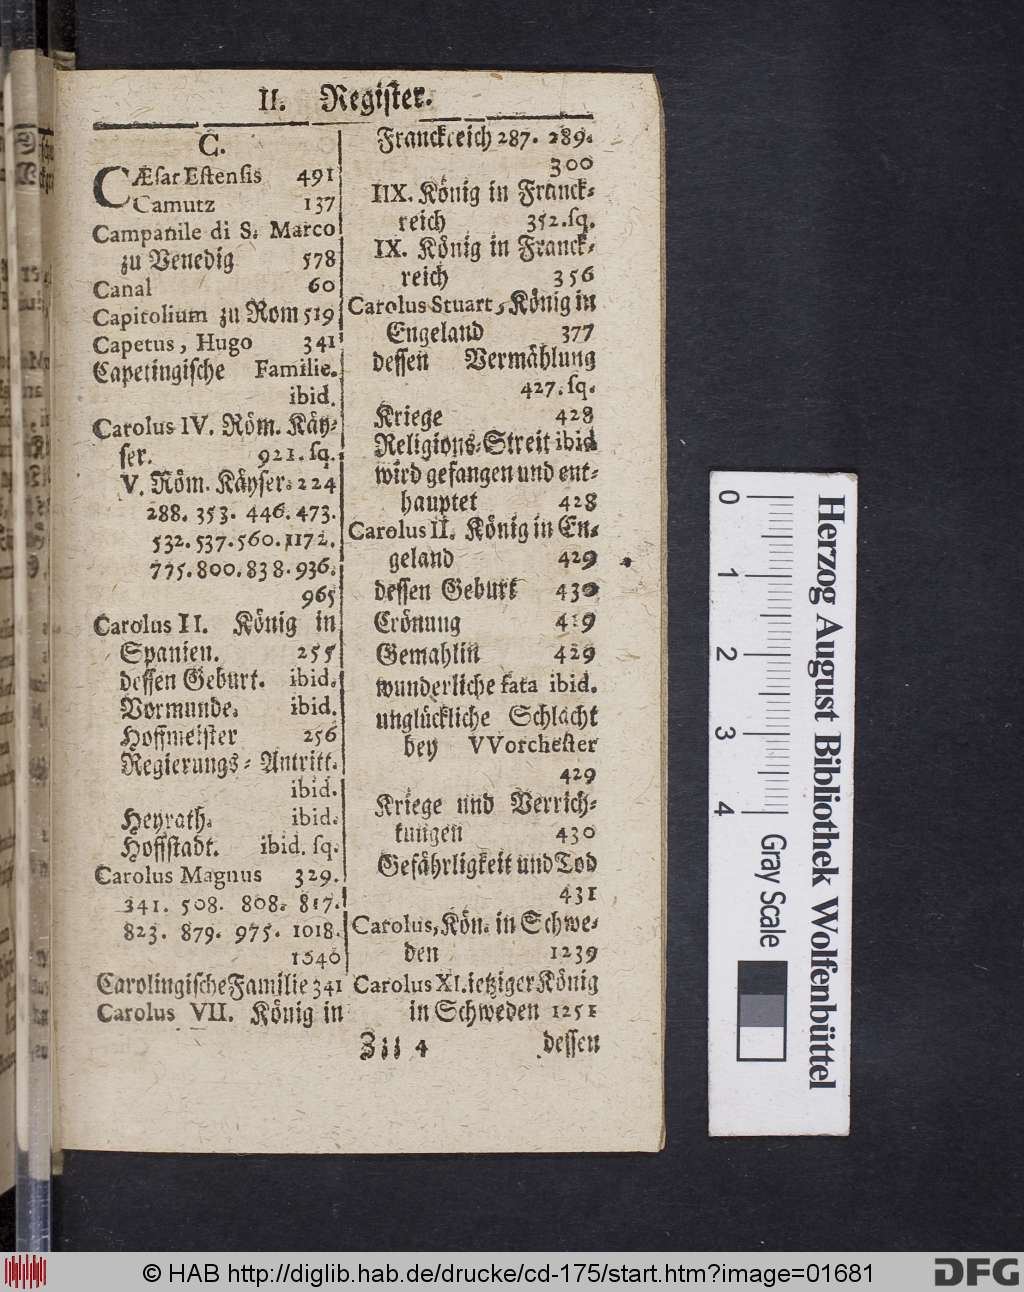 II. Regiſter.
C.
CÆſar Eſtenſis 491
Camutz 137
Campanile di S. Marco
zu Venedig 578
Canal 60
Capitolium zu Rom 519
Capetus, Hugo 341
Capetingiſche Familie.
ibid.
Carolus IV. Röm. Käy-
ſer. 921. ſq.
V. Röm. Käyſer. 224
288. 353. 446. 473.
532. 537. 560. 1172.
775. 800. 838. 936.
965
Carolus II. König in
Spanien. 255
deſſen Geburt. ibid.
Vormunde. ibid.
Hoffmeiſter 256
Regierungs-Antritt.
ibid.
Heyrath. ibid.
Hoffſtadt. ibid. ſq.
Carolus Magnus 329.
341. 508. 808. 817.
823. 879. 975. 1018.
1040
Carolingiſche Familie 341
Carolus VII. König in
Franckreich 287. 289.
300
IIX. König in Franck-
reich 352. ſq.
IX. König in Franck-
reich 356
Carolus Stuart, König in
Engeland 377
deſſen Vermählung
427. ſq.
Kriege 428
Religions-Streit ibid
wird gefangen und ent-
hauptet 428
Carolus II. König in En-
geland 429
deſſen Geburt 430
Crönung 429
Gemahlin 429
wunderliche fata ibid.
unglückliche Schlacht
bey VVorcheſter
429
Kriege und Verrich-
tungen 430
Gefährligkeit und Tod
431
Carolus, Kön. in Schwe-
den 1239
Carolus XI. ietziger König
in Schweden 1251
Zii 4 deſſen
0 1 2 3 4
Gray Scale
Herzog August Bibliothek Wolfenbüttel
© HAB http://diglib.hab.de/drucke/cd-175/start.htm?image=01681
DFG